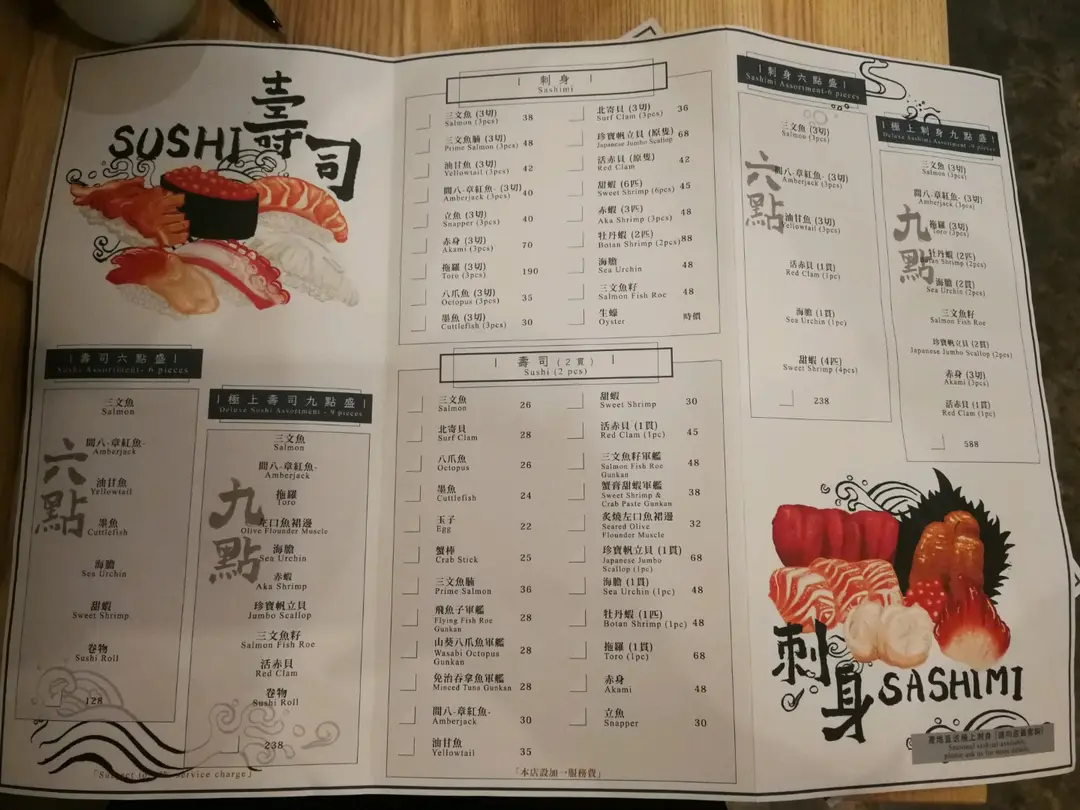 SUSHI 壽司
壽司六點盛
Sushi Assortment- 6 pieces
六點
三文魚
Salmon
間八-章紅魚-
Amberjack
油甘魚
Yellowtail
墨魚
Cuttlefish
海膽
Sea Urchin
甜蝦
Sweet Shrimp
卷物
Sushi Roll
128
極上壽司九點盛
Deluxe Sushi Assortment - 9 pieces
九點
三文魚
Salmon
間八-章紅魚-
Amberjack
拖羅
Toro
左口魚裙邊
Olive Flounder Muscle
海膽
Sea Urchin
赤蝦
Aka Shrimp
珍寶帆立貝
Jumbo Scallop
三文魚籽
Salmon Fish Roe
活赤貝
Red Clam
卷物
Sushi Roll
238
service charge」
刺身
Sashimi
三文魚 (3切)
Salmon (3pcs) 38
三文魚腩 (3切)
Prime Salmon (3pcs) 48
油甘魚 (3切)
Yellowtail (3pcs) 42
間八-章紅魚- (3切)
Amberjack (3pcs) 40
立魚 (3切)
Snapper (3pcs) 40
赤身 (3切)
Akami (3pcs) 70
拖羅 (3切)
Toro (3pcs) 190
八爪魚 (3切)
Octopus (3pcs) 35
墨魚 (3切)
Cuttlefish (3pcs) 30
北寄貝 (3切)
Surf Clam (3pcs) 36
珍寶帆立貝 (原隻)
Japanese Jumbo Scallop 68
活赤貝 (原隻)
Red Clam 42
甜蝦 (6匹)
Sweet Shrimp (6pcs) 45
赤蝦 (3匹)
Aka Shrimp (3pcs) 48
牡丹蝦 (2匹)
Botan Shrimp (2pcs) 88
海膽
Sea Urchin 48
三文魚籽
Salmon Fish Roe 48
生蠔
Oyster 時價
壽司 (2貫)
Sushi (2 pcs)
三文魚
Salmon 26
北寄貝
Surf Clam 28
八爪魚
Octopus 26
墨魚
Cuttlefish 24
玉子
Egg 22
蟹棒
Crab Stick 25
三文魚腩
Prime Salmon 36
飛魚子軍艦
Flying Fish Roe
Gunkan 28
山葵八爪魚軍艦
Wasabi Octopus
Gunkan 28
免治吞拿魚軍艦
Minced Tuna Gunkan 28
間八-章紅魚-
Amberjack 30
油甘魚
Yellowtail 35
甜蝦
Sweet Shrimp 30
活赤貝 (1貫)
Red Clam (1pc) 45
三文魚籽軍艦
Salmon Fish Roe
Gunkan 48
蟹膏甜蝦軍艦
Sweet Shrimp &
Crab Paste Gunkan 38
炙燒左口魚裙邊
Seared Olive
Flounder Muscle 32
珍寶帆立貝 (1貫)
Japanese Jumbo
Scallop (1pc) 68
海膽 (1貫)
Sea Urchin (1pc) 48
牡丹蝦 (1匹)
Botan Shrimp (1pc) 48
拖羅 (1貫)
Toro (1pc) 68
赤身
Akami 48
立魚
Snapper 30
「本店設加一服務費」
刺身六點盛
Sashimi Assortment-6 pieces
六點
三文魚 (3切)
Salmon (3pcs)
間八-章紅魚- (3切)
Amberjack (3pcs)
油甘魚 (3切)
Yellowtail (3pcs)
活赤貝 (1貫)
Red Clam (1pc)
海膽 (1貫)
Sea Urchin (1pc)
甜蝦 (4匹)
Sweet Shrimp (4pcs)
238
極上刺身九點盛
Deluxe Sashimi Assortment -9 pieces
九點
三文魚 (3切)
Salmon (3pcs)
間八-章紅魚- (3切)
Amberjack (3pcs)
拖羅 (3切)
Toro (3pcs)
牡丹蝦 (2匹)
Botan Shrimp (2pcs)
海膽 (2貫)
Sea Urchin (2pcs)
三文魚籽
Salmon Fish Roe
珍寶帆立貝 (2貫)
Japanese Jumbo Scallop (2pcs)
赤身 (3切)
Akami (3pcs)
活赤貝 (1貫)
Red Clam (1pc)
588
刺身 SASHIMI
產地直送極上刺身
Seasonal seafood available,
please ask us for more details.